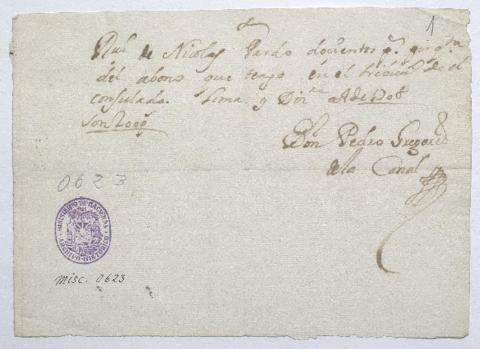 1
Rvi de Nicolas Pardo docientos ps
del abono que tengo en el de el
consulado. Lima y A de 1708
Son 200ps
Don Pedro Gregorio
de la Canal
0623
MINISTERIO DE HACIENDA
ARCHIVO HISTORICO
misc. 0623